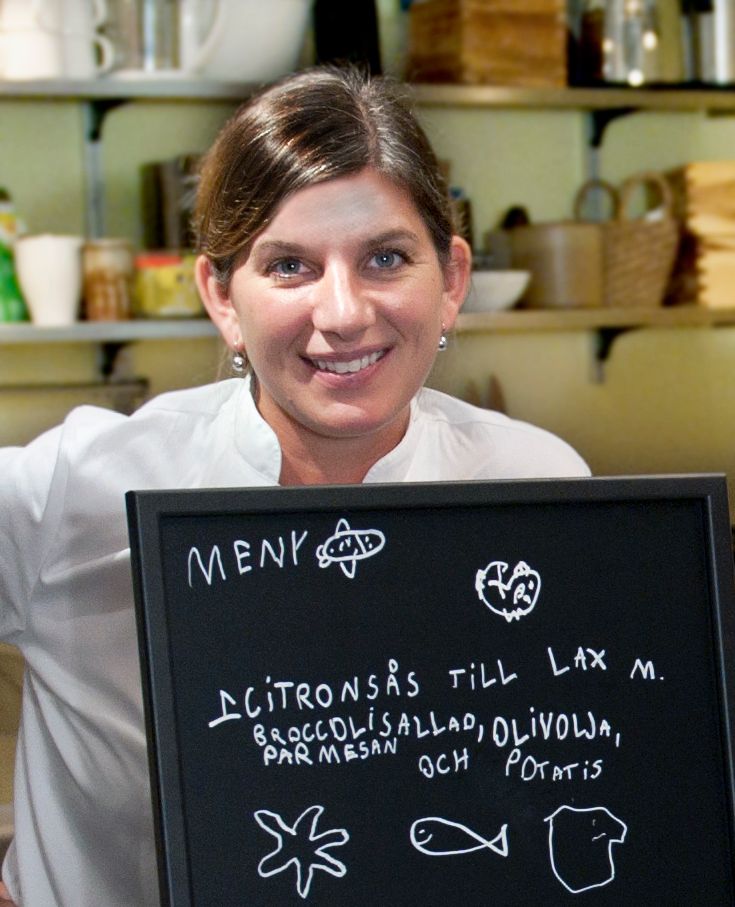 MENY
1 CITRONSÅS TILL LAX M.
BROCCOLISALLAD, OLIVOLJA,
PARMESAN OCH POTATIS